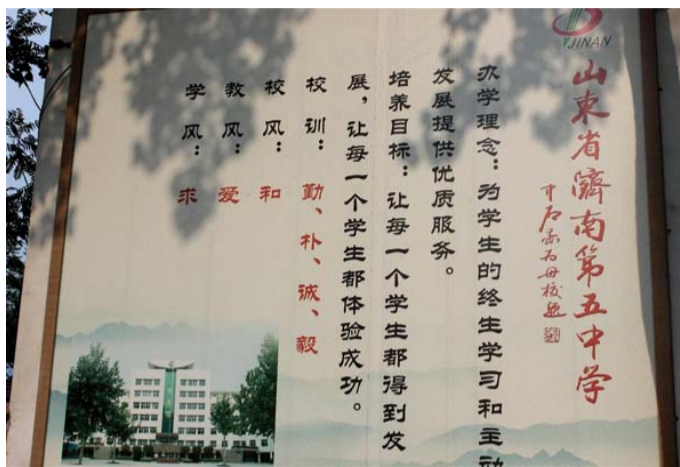 JINAN
山東省濟南第五中学
办学理念：为学生的终生学习和主动
发展提供优质服务。
培养目标：让每一个学生都得到发
展，让每一个学生都体验成功。
校训：勤、朴、诚、毅
校风：和
教风：爱
学风：求